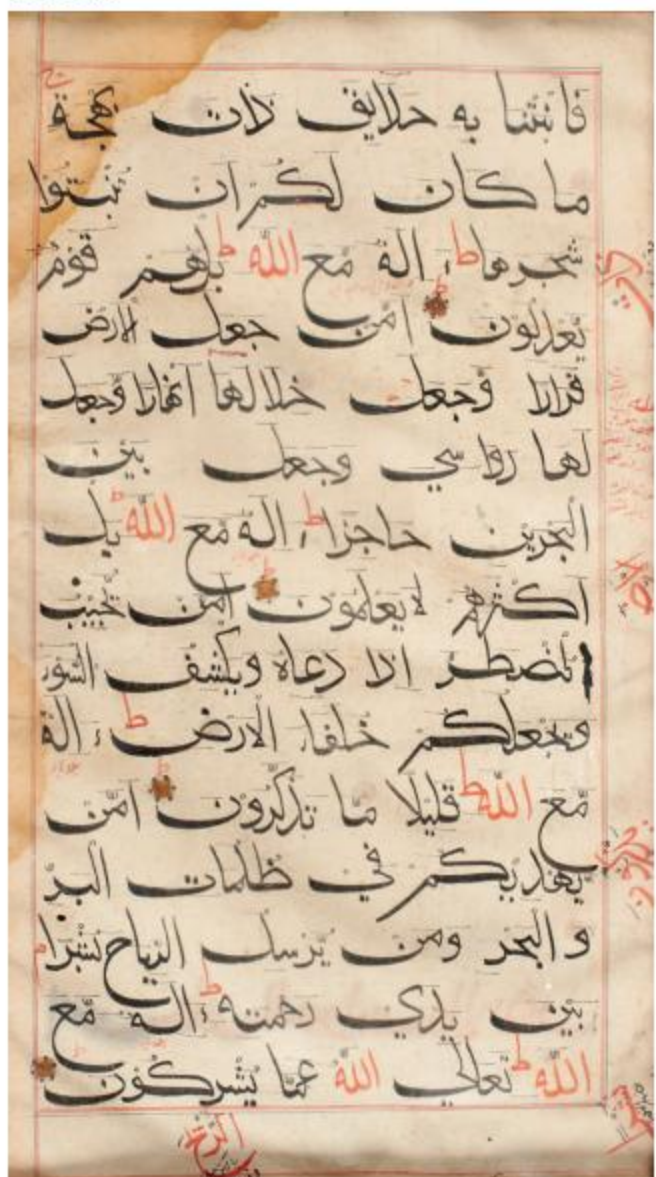 فانبتنا به حدايق ذات بهجة
ما كان لكم ان تنبتوا
شجرها ط ءاله مع الله ط بل هم قوم
يعدلون امن جعل الارض
قرارا وجعل خلالها انهارا وجعل
لها رواسي وجعل بين
البحرين حاجزا ط ءاله مع الله ط بل
اكثرهم لا يعلمون امن يجيب
المضطر اذا دعاه ويكشف السوء
ويجعلكم خلفاء الارض ط ءاله
مع الله ط قليلا ما تذكرون امن
يهديكم في ظلمات البر
و البحر ومن يرسل الرياح بشرا
بين يدي رحمته ط ءاله مع
الله ط تعالي الله عما يشركون